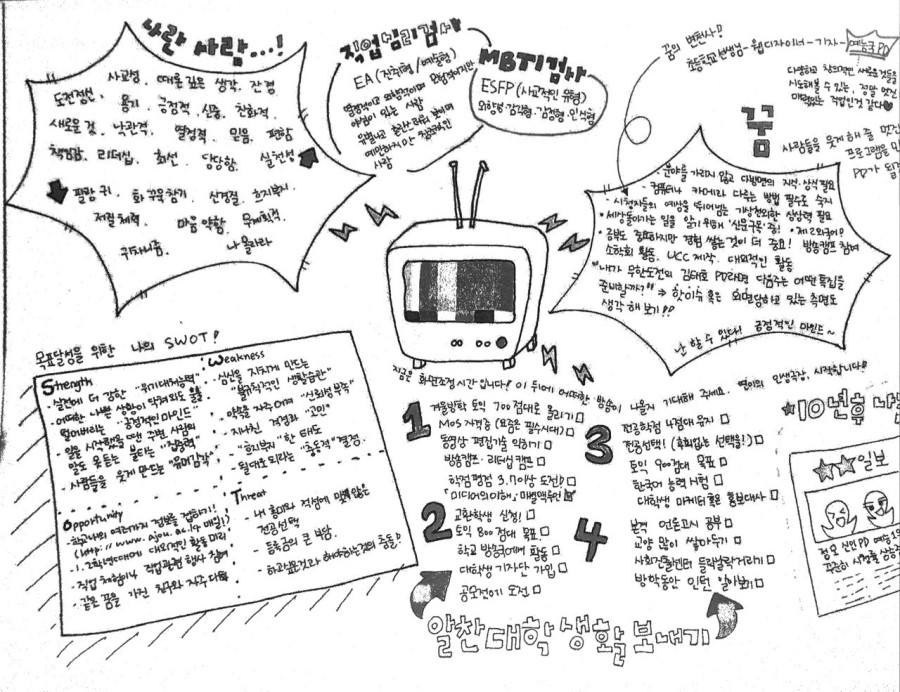 나란 사람...!
사교성, 때론 깊은 생각, 잔정
도전정신, 용기, 긍정적, 신중, 친화적
새로운 것, 낙관적, 열정적, 믿음, 편함
책임감, 리더십, 최선, 당당함, 실천성
팔랑귀, 화 꾹꾹 참기, 신경질, 흐지부지
저질체력, 마음 약함, 무계획적
귀차니즘, 나 몰라라
직업심리검사
EA (진취형/예술형)
열정적이고 외향적이며
야심이 있는 사람
사람
MBTI검사
ESFP (사교적인 유형)
외향형·감각형·감정형·인식형
꿈의 변천사!
초등학교선생님-웹디자이너-기자-예능국PD
다양하고 창의적인 새로운 것들을
시도해볼 수 있는, 정말 멋진
매력있는 직업인것 같다
꿈
사람들을 웃게 해 줄 멋진
프로그램을 만
PD가 될
- 분야를 가리지 않고 다방면의 지식·상식 필요
- 컴퓨터나 카메라 다루는 방법 필수로 숙지
- 시청자들의 예상을 뛰어넘는 기상천외한 상상력 필요
* 세상돌아가는 일을 알기 위해 '신문구독'중! * 제2외국어?
* 공부도 중요하지만 경험 쌓는 것이 더 중요! 방송캠프 참여
소학회 활동, UCC 제작, 대외적인 활동
* "내가 무한도전의 김태호 PD라면 다음주는 어떤 특집을
준비할까?" ⇒ 한이슈 혹은 외면당하고 있는 측면도
생각해 보기!!
난 할 수 있다! 긍정적인 마인드~
목표달성을 위한 나의 SWOT!
Strength
- 실전에 더 강한 "위기대처능력"
- 어떠한 나쁜 상황이 닥쳐와도 웃음
"긍정적인 마인드"
- 일을 시작했을 땐 주변 사람의
말도 못 듣는 불타는 "집중력"
- 사람들을 웃게 만드는 "유머감각"
Weakness
만드는
"불규칙적인 생활습관"
- 약속을 자주 어겨 "신뢰성 부족"
- 지나친 걱정과 "고민"
- "흐지부지"한 태도
- 될대로 되라는 "충동적" 결정
Opportunity
- 학교나의 여러가지 정보를 접하기!
(http://www.ajou.ac.kr 매일!)
- 1,2학년때에 대외적인 활동 미리
- 직업 체험이나 직업관련 행사 참여
- 같은 꿈을 가진 친구와 자주 대화
Threat
- 내 흥미와 적성에 맞지 않은
전공선택
- 등록금의 큰 부담
- 하고싶은것과 하여야하는것의 충돌!
지금은 화면조정시간입니다! 이 뒤에 어떠한 방송이 나올지 기대해 주세요. 인생극장, 시작합니다!
1
겨울방학 토익 700점대로 올리기 □
MOS 자격증 (요즘은 필수시대) □
동영상 편집기술 익히기 □
방송캠프·리더십캠프 □
학점평점 3.7이상 도전! □
「미디어의이해」
2
교환학생 신청! □
토익 800점대 목표 □
학교 방송국에서 활동 □
대학생 기자단 가입 □
공모전에 도전 □
3
전공학점 4점대 유지 □
전공선택! (후회없는 선택을!) □
토익 900점대 목표 □
한국어 능력시험 □
대학생 마케터 혹은 홍보대사 □
4
본격 언론고시 공부 □
교양 많이 쌓아두기 □
사회진출센터 들락날락거리기 □
방학동안 인턴 알아보기 □
알찬 대학생활 보내기
★10년후 나는
★★일보
정모 신인 PD 예능
꾸준히 시청률 상승